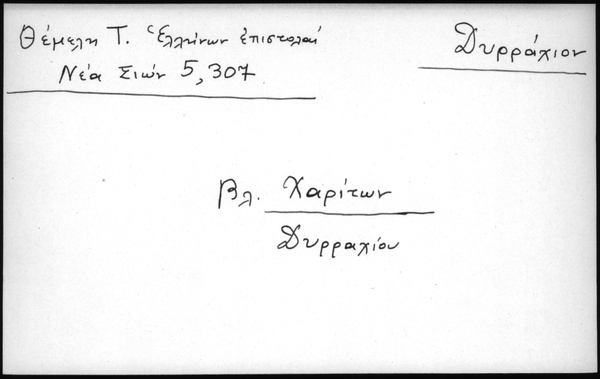 Θέμελη Τ. Ἑλλήνων ἐπιστολαί
Νέα Σιών 5, 307
Δυρράχιον
Βλ. Χαρίτων
Δυρραχίου